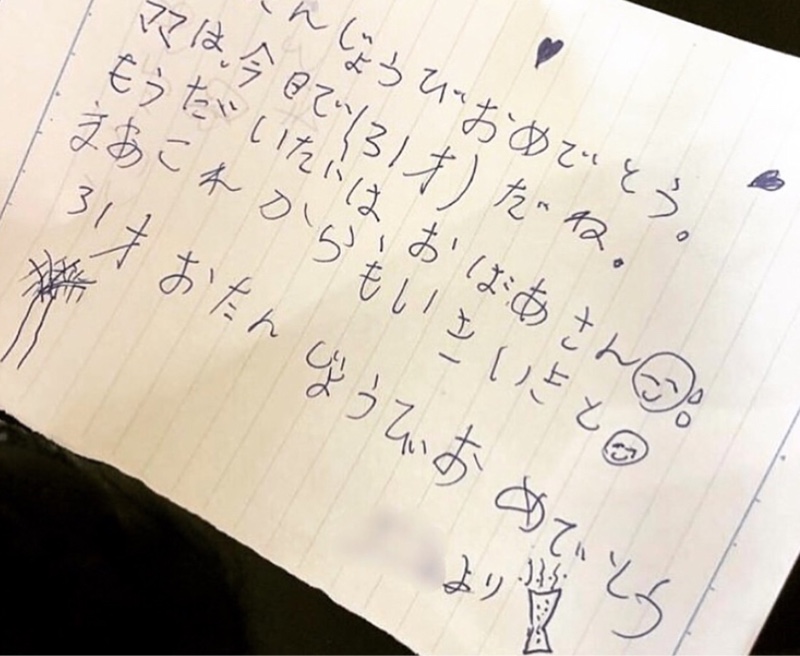 んじょうびおめでとう。
ママは、今日で(31才)だね。
もうだいたいは、おばあさん
まあこれからもいきいきと
31才おたんじょうびおめでとう
より